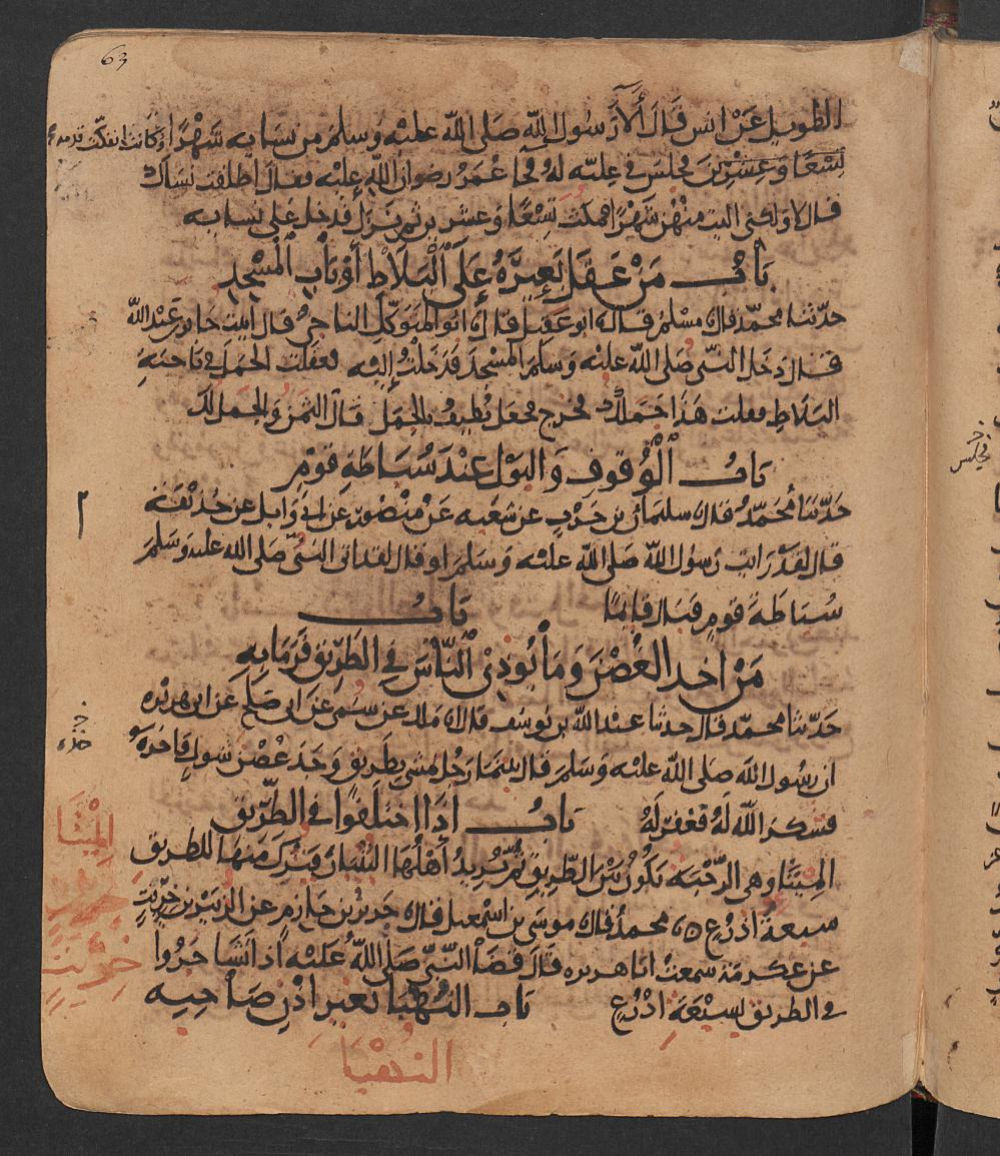 63
الطويل عن انس قال آلا رسول الله صلى الله عليه وسلم من نسايه شهرا وكانت انفكت قدمه
تسعا وعشرين مجلس في علية له فجا عمر رضوان الله عليه فقال اطلقت نساك
قال لا ولكني اليت منهن شهرا فمكث تسعا وعشرين ثم نزل فدخل على نسايه
باب من عقل بعيره على البلاط أو باب المسجد
حدثنا محمد قال نا مسلم قال نا ابو عقيل قال نا ابو المتوكل الناجي قال اتيت جابر بن عبد الله
فقال دخل النبي صلى الله عليه وسلم المسجد فدخلت إليه فعقلت الجمل في ناحية
البلاط فقلت هذا جملك فخرج فجعل يطيف بالجمل قال الثمن والجمل لك
باب الوقوف والبول عند سباطة قوم
حدثنا محمد قال نا سليمان بن حرب عن شعبه عن منصور عن ابي وايل عن حذيفة
قال لقد رايت رسول الله صلى الله عليه وسلم او قال لقد اتى النبي صلى الله عليه وسلم
سباطة قوم فبال قايما باب
من اخذ الغصن وما يوذي الناس في الطريق فرما به
حدثنا محمد قال حدثنا عبد الله بن يوسف قال نا ملك عن سمي عن ابي صلح عن ابي هريره
ان رسول الله صلى الله عليه وسلم قال بينما رجل مشي بطريق وجد غصن شوك فاخره
فشكر الله له فغفر له باب اذا اختلفوا في الطريق
الميتا وهي الرحبه تكون بين الطريق ثم يريد أهلها البنيان فترك منها للطريق
سبعة اذرع نا محمد قال نا موسى بن اسمعيل قال نا جرير بن حازم عن الزبير بن خريت
عن عكرمة سمعت ابا هريره قال قضا النبي صلى الله عليه اذا تشاجروا
في الطريق بسبعة اذرع باب النهبا بغير اذن صاحبه
فجلس
خ
الميتا
خريت
النهبا